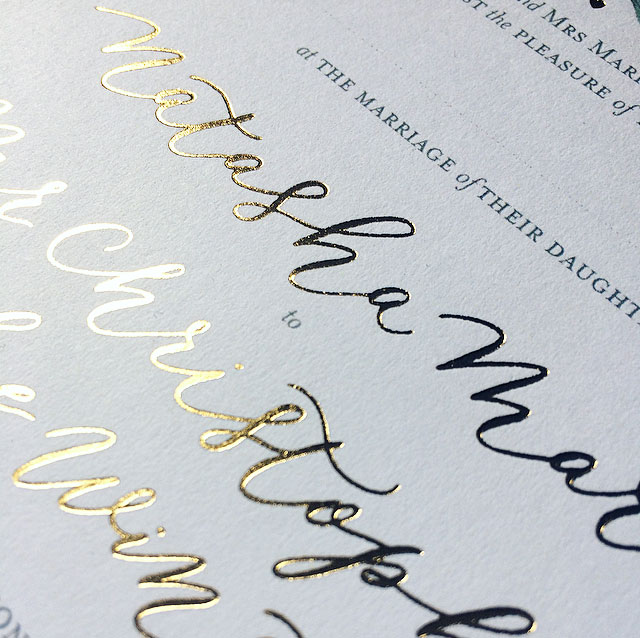 and MRS MARI
ST the PLEASURE of
at THE MARRIAGE of THEIR DAUGHT
Natasha Ma
to
mr Christoph
Wein
ON